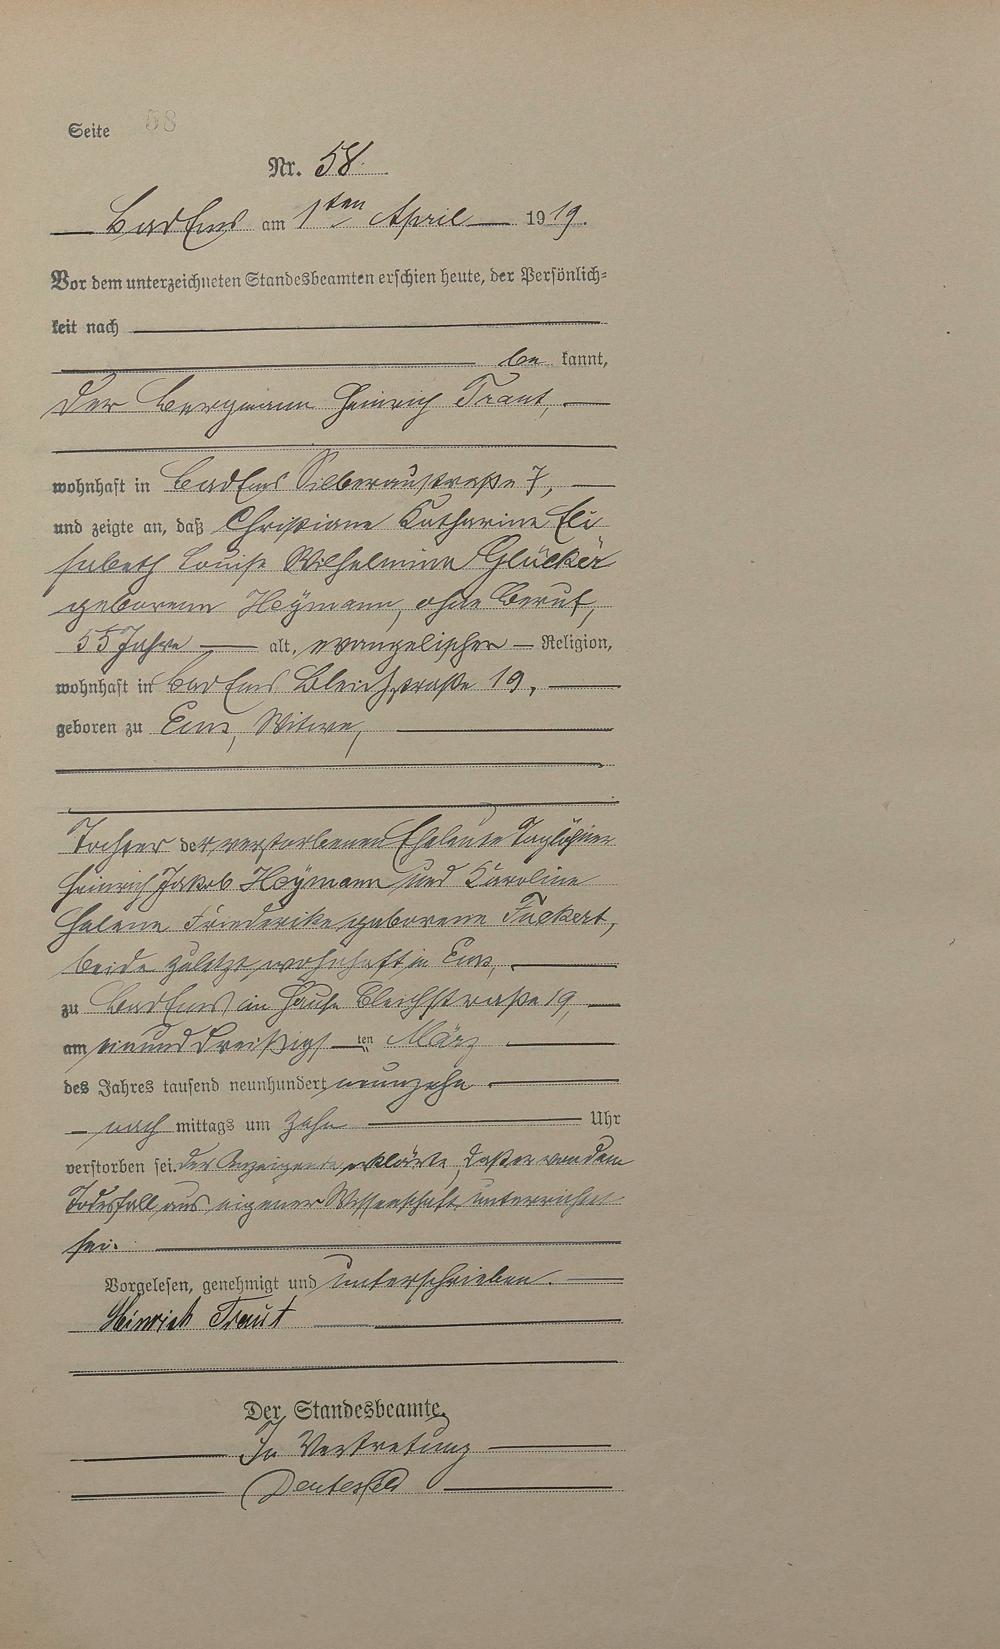 Seite 58
Nr. 58.
Bad Ems am 1ten April 1919.
Vor dem unterzeichneten Standesbeamten erschien heute, der Persönlich-
keit nach
be kannt,
der Bergmann Heinrich Traut,
wohnhaft in Bad Ems Silberaustraße 7,
und zeigte an, daß Christiane Katharine Eli
sabeth Louise Wilhelmine Glücker
geborenen Heymann, ohne Beruf,
55 Jahre alt, evangelischer Religion,
wohnhaft in Bad Ems Bleichstraße 19,
geboren zu Ems, Witwe,
Tochter der verstorbenen Eheleute Taglöhner
Heinrich Jakob Heymann und Karoline
Helene Friederike geborene Fuckert,
beide zuletzt wohnhaft in Ems,
zu Bad Ems im Hause Bleichstraße 19,
am einunddreißigsten März
des Jahres tausend neunhundert neunzehn
nach mittags um zehn Uhr
verstorben sei. Der Anzeigende erklärte, daß er von dem
Todesfall aus eigener Wissenschaft unterrichtet
sei.
Vorgelesen, genehmigt und unterschrieben.
Heinrich Traut
Der Standesbeamte,
In Vertretung